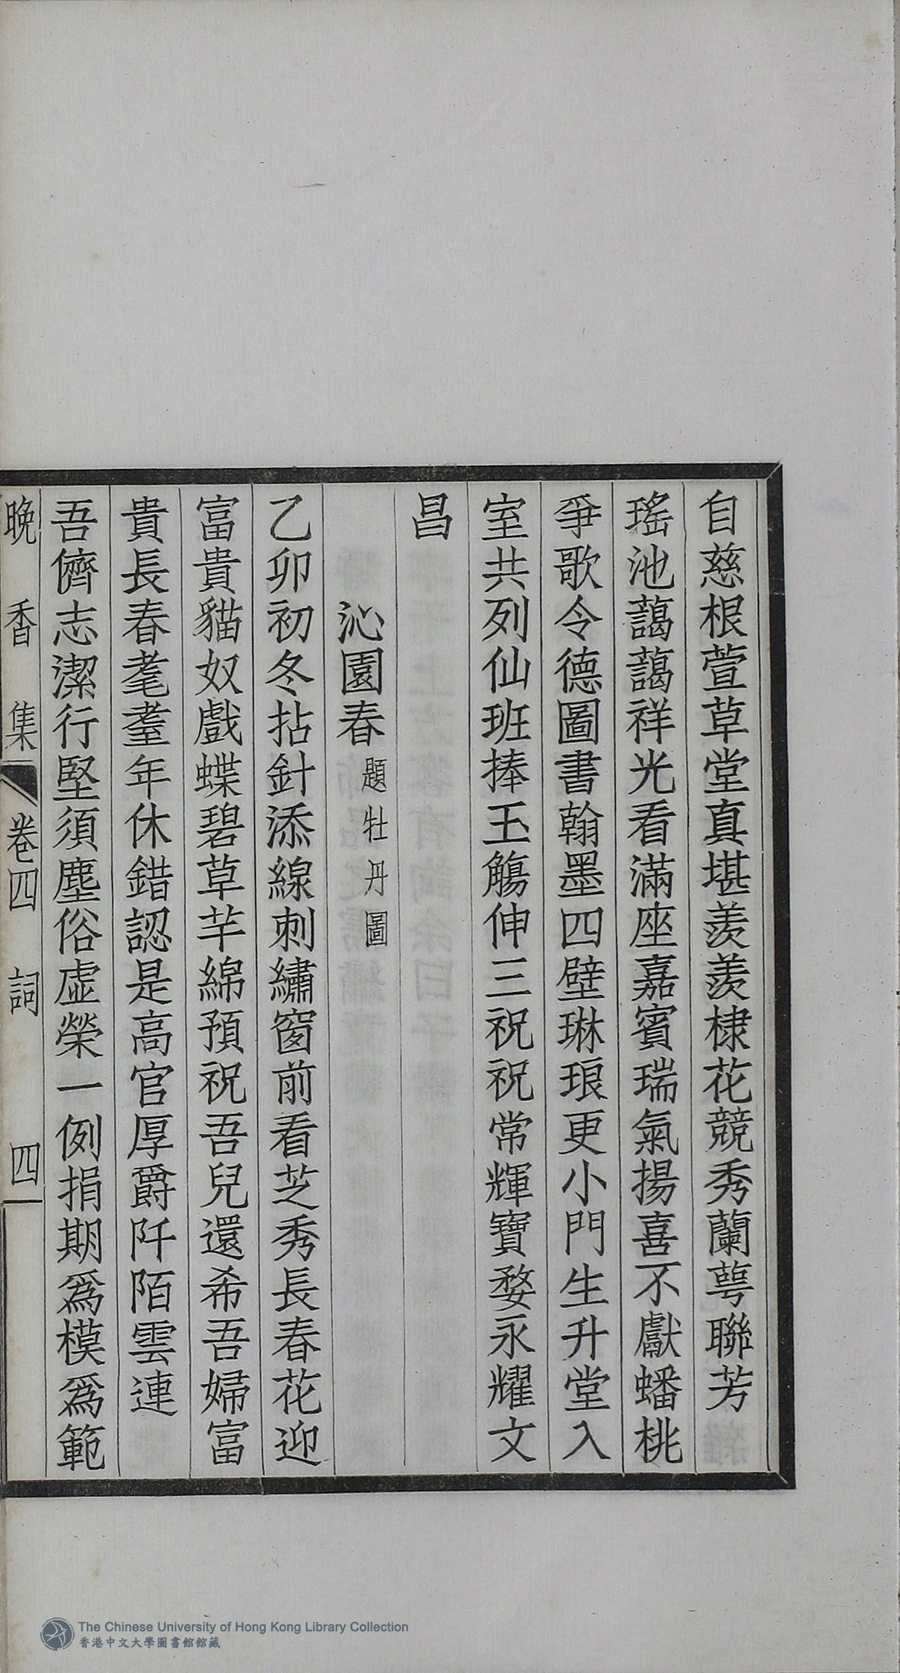 自慈根萱草堂真堪羨羨棣花競秀蘭萼聯芳
瑤池藹藹祥光看滿座嘉賓瑞氣揚喜不獻蟠桃
爭歌令德圖書翰墨四壁琳琅更小門生升堂入
室共列仙班捧玉觴伸三祝祝常輝寶婺永耀文
昌
沁園春 題牡丹圖
乙卯初冬拈針添線刺繡窗前看芝秀長春花迎
富貴貓奴戲蝶碧草芊綿預祝吾兒還希吾婦富
貴長春耄耋年休錯認是高官厚爵阡陌雲連
吾儕志潔行堅須塵俗虛榮一例捐期為模為範
晚香集 卷四 詞 四
The Chinese University of Hong Kong Library Collection
香港中文大學圖書館館藏